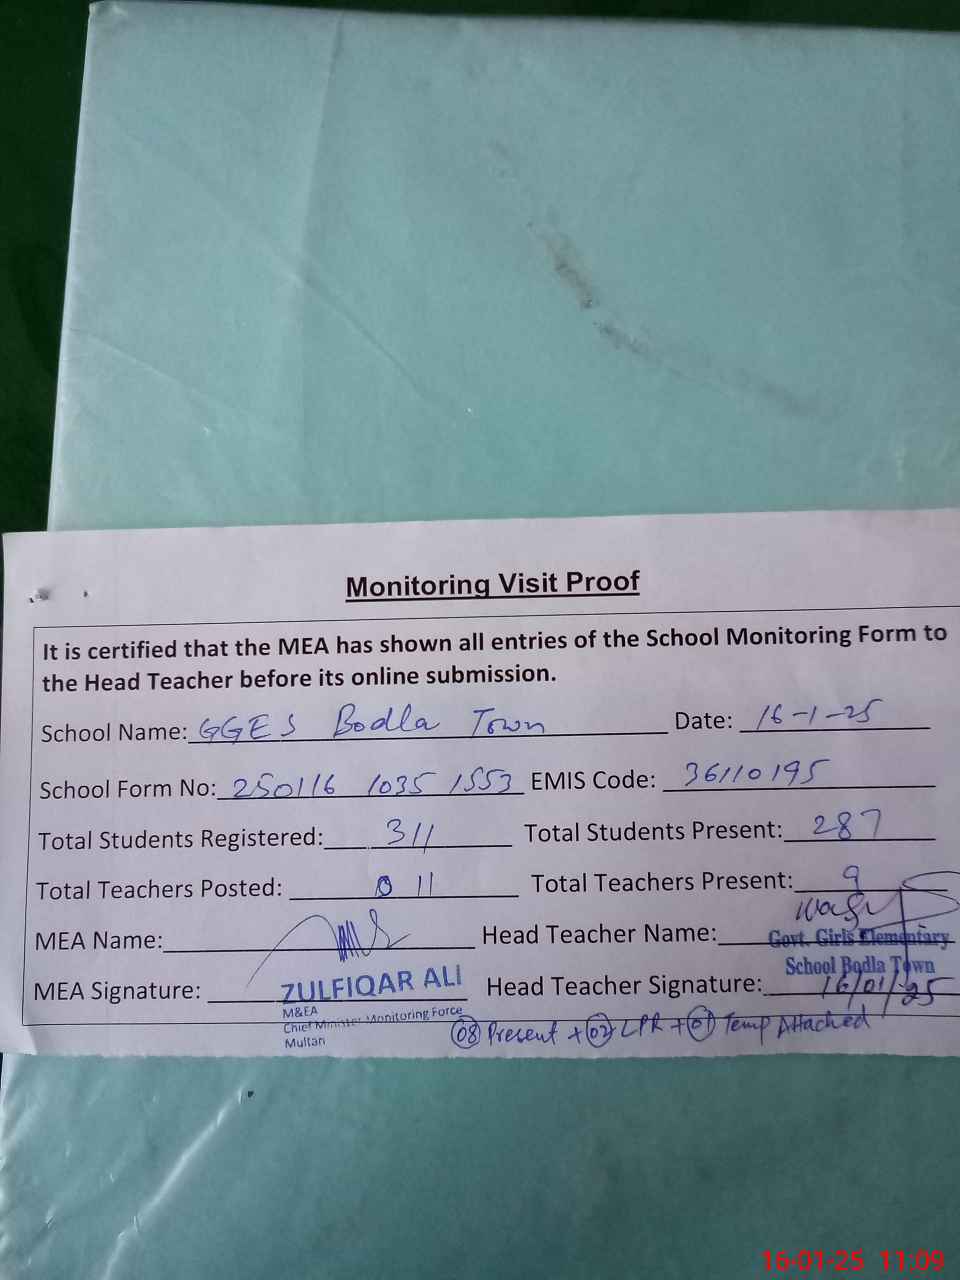 Monitoring Visit Proof
It is certified that the MEA has shown all entries of the School Monitoring Form to
the Head Teacher before its online submission.
School Name: GGES Bodla Town Date: 16-1-25
School Form No: 250116 1035 1553 EMIS Code: 36110195
Total Students Registered: 311 Total Students Present: 287
Total Teachers Posted: 0 11 Total Teachers Present: 9
MEA Name: Head Teacher Name:
Govt. Girls Elementary
School Bodla Town
MEA Signature: ZULFIQAR ALI Head Teacher Signature: 16/01/25
M&EA
Chief Minister Monitoring Force
Multan
08 Present + 02 LPR + 01 Temp Attached
16-01-25 11:09